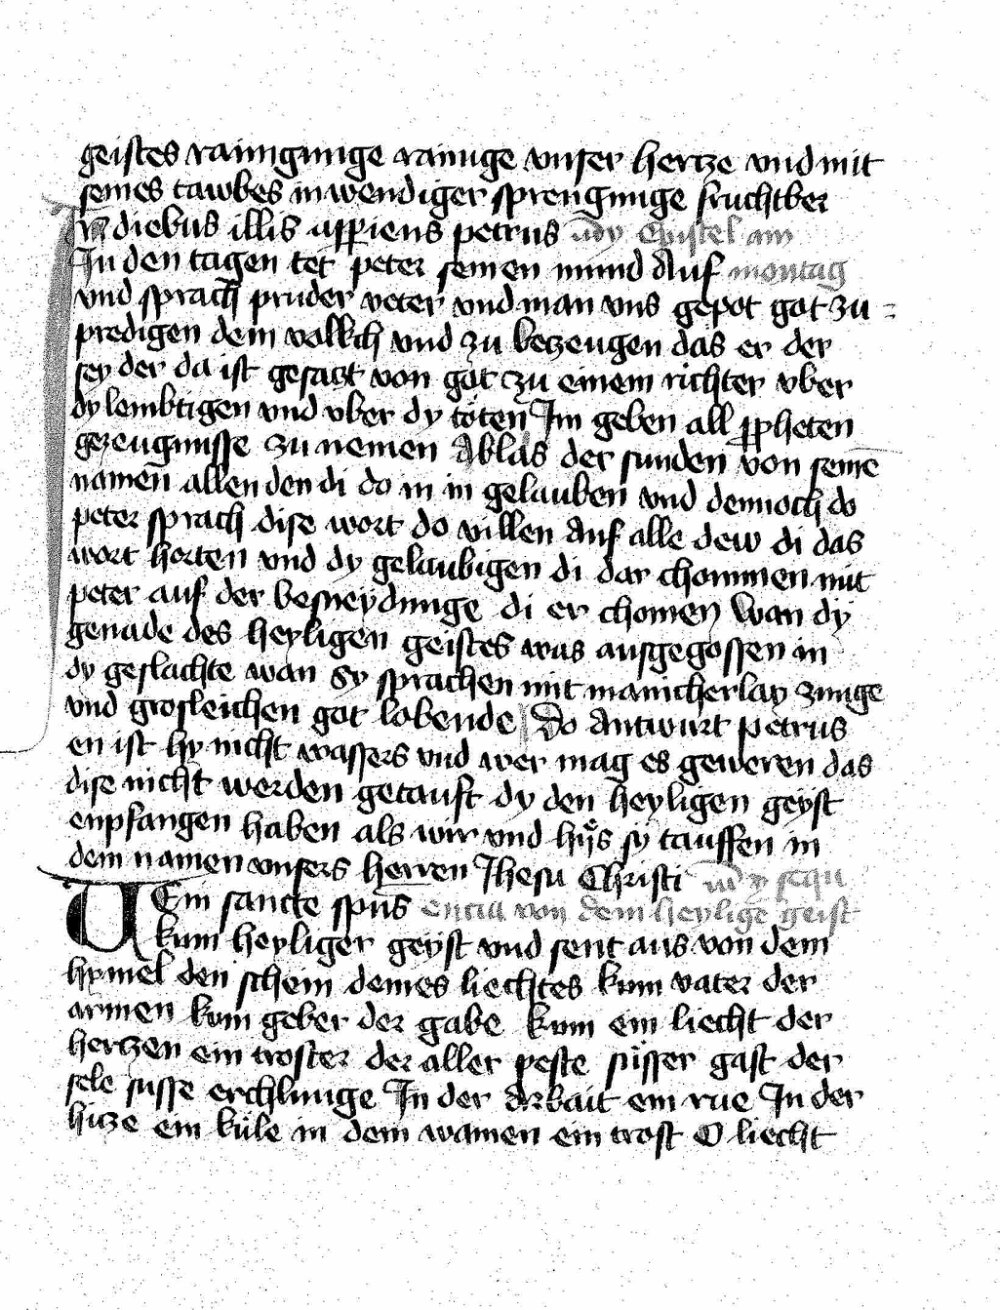 geistes rainigunge rainige vnser hertze vnd mit
seines tawbes inwendiger sprengunge fruchtber
In diebus illis apperiens petrus dy Epistel am
In den tagen tet peter seinen mund Auf montag
vnd sprach pruder veter vnd man vns gepot got zu =
predigen dem volkch vnd zu beczeugen das er der
sey der da ist gesaczt von got zu einem richter vber
dy lembtigen vnd vber dy toten Im geben all ppheten
gezeugnisse zu nemen Ablas der sunden von seinē
namen allen den di do in in gelauben vnd dennoch do
peter sprach dise wort do villen auf alle dew di das
wort horten vnd dy gelaubigen di dar chommen mit
peter auf der besneydunge di er chomen wan dy
genade des heyligen geistes was ausgegossen in
dy geslachte wan sy sprachen mit manicherlay zunge
vnd grosleichen got lobende Do antwurt petrus
en ist hy nicht wassers vnd wer mag es geweren das
dise nicht werden getauft dy den heyligen geyst
enpfangen haben als wir vnd hijs sy tauffen in
dem namen vnsers herren Jhesu Christi dy sequ
UEni sancte spūs encia von dem heylige geist
kum heyliger geyst vnd sent aus von dem
hymel den schein deines liechtes kum vater der
armen kum geber der gabe kum ein liecht der
hertzen ein troster der aller peste süsser gast der
sele susse erchlunge In der arbait ein rue In der
hitze ein küle in dem wainen ein trost O liecht